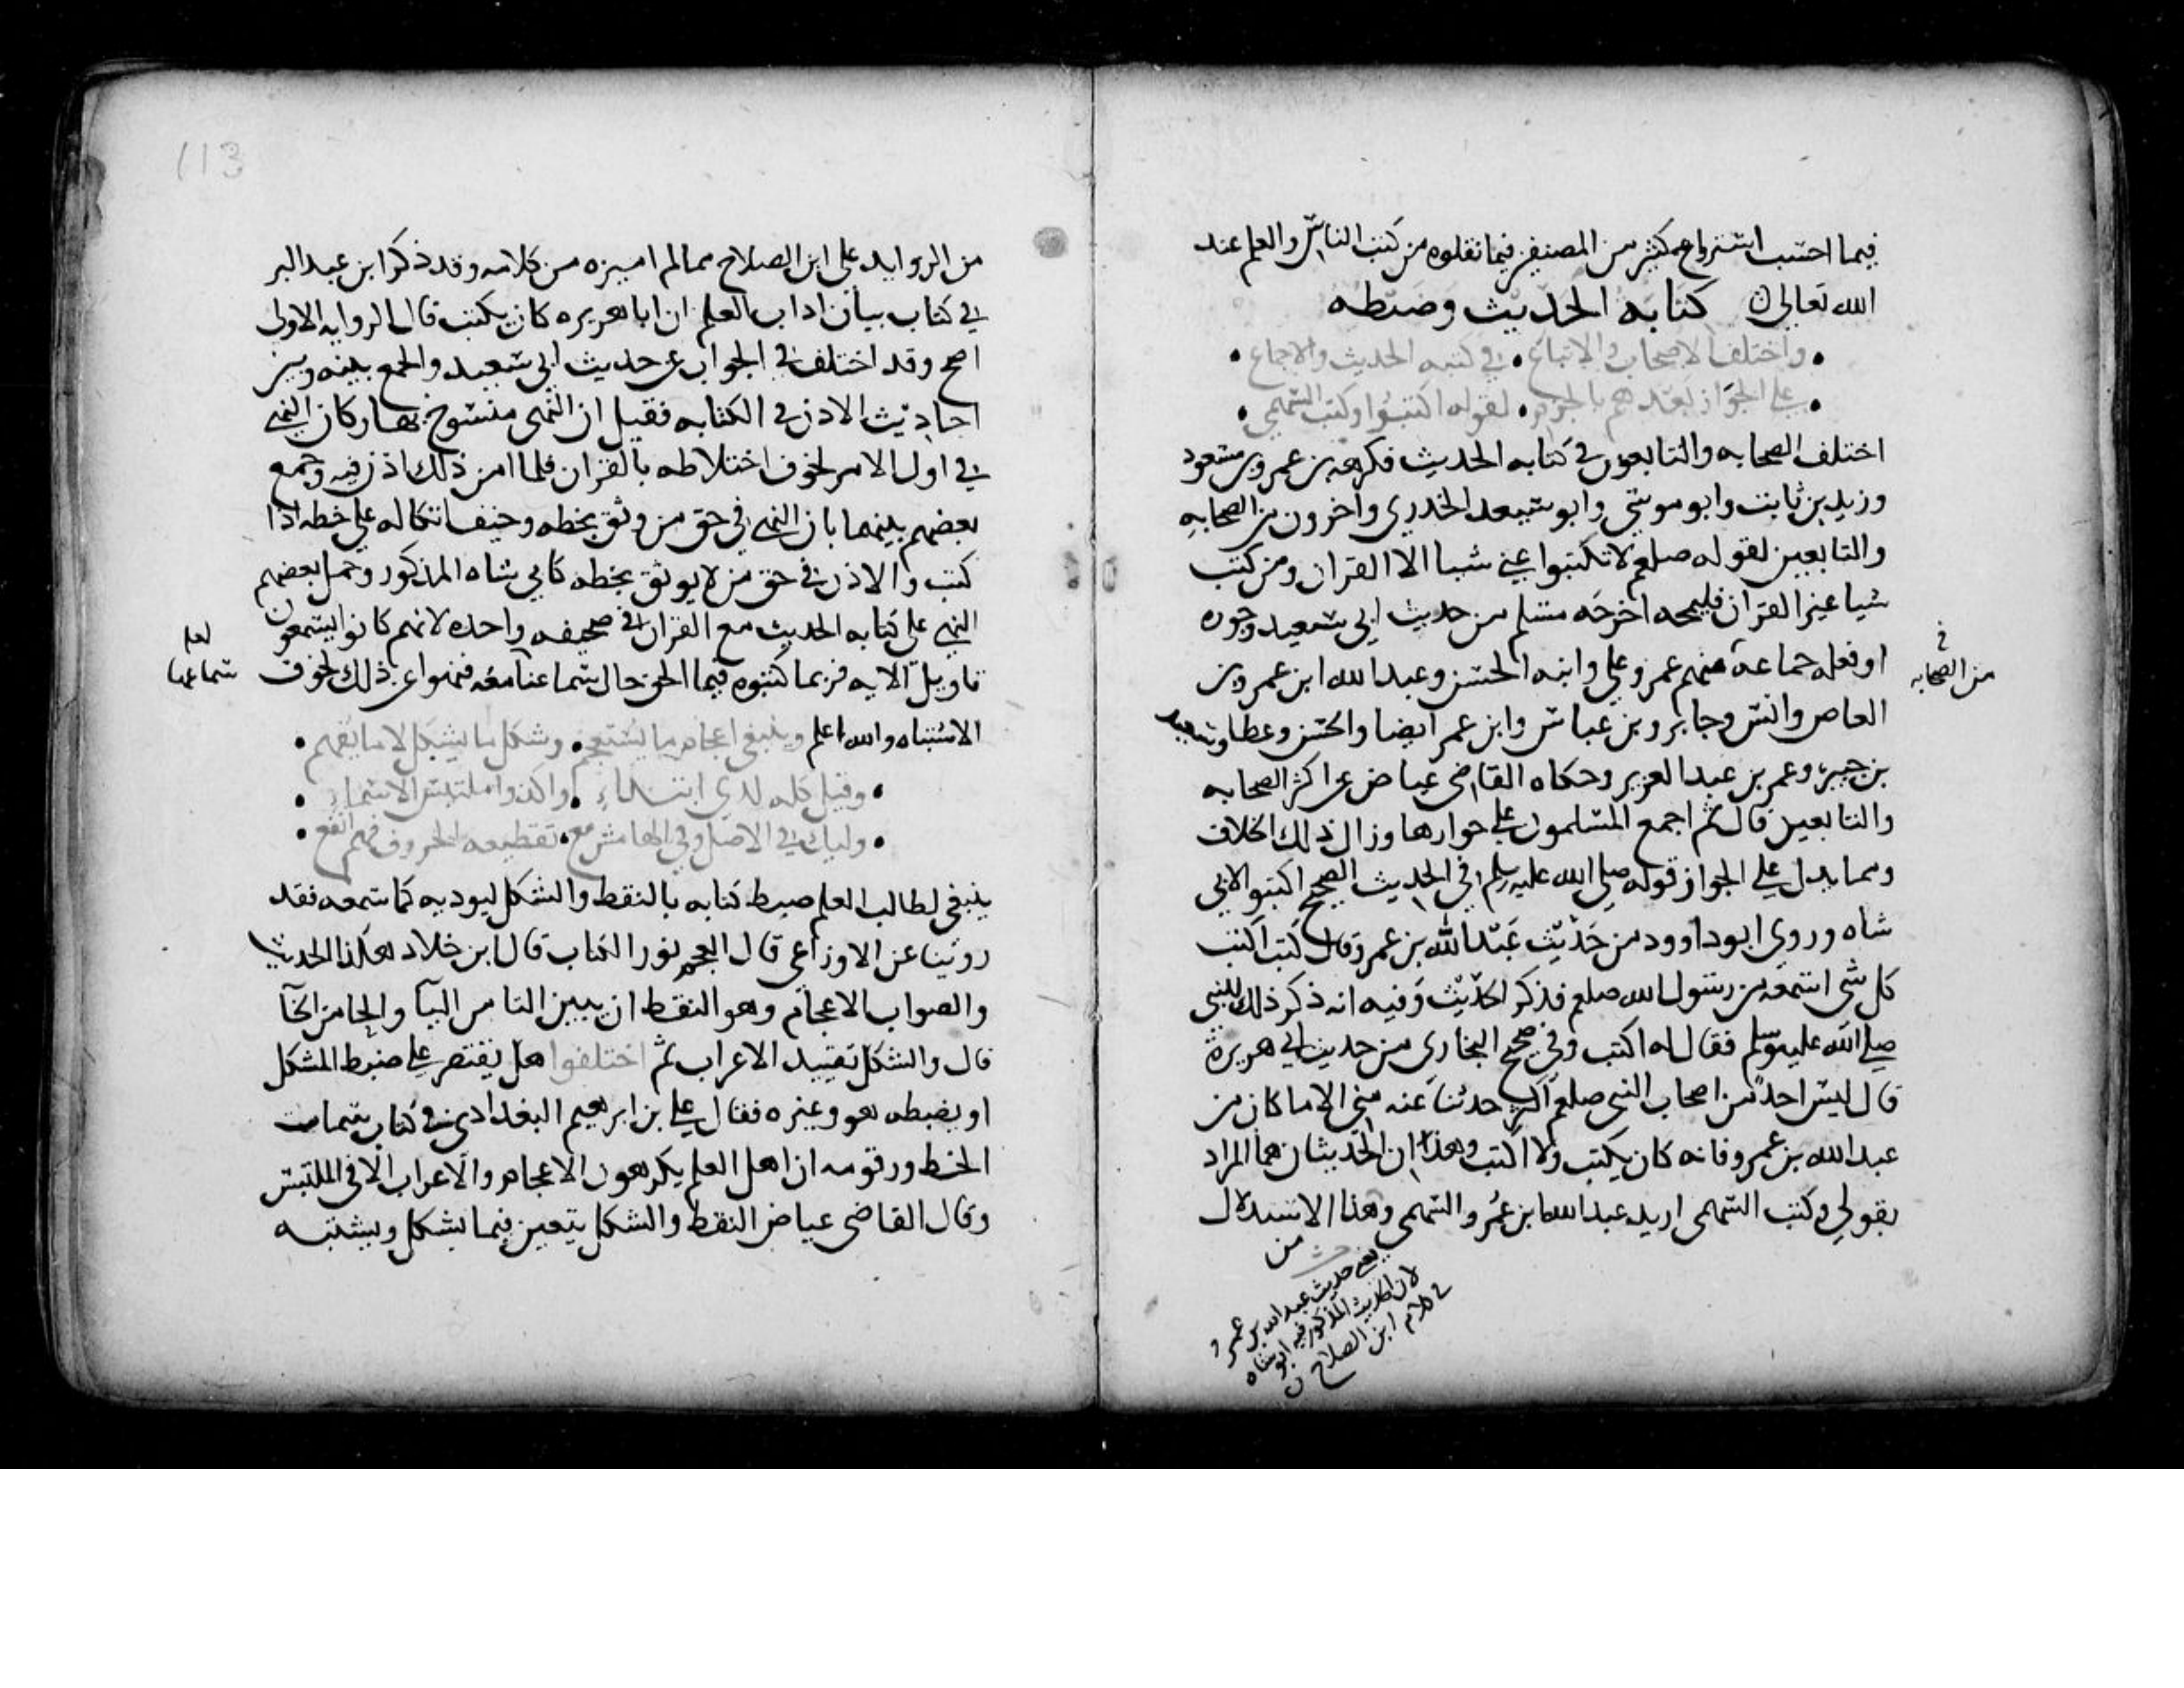 فيما احتسب استرواح كثير من المصنفين فيما نقلوه من كتب الناس والعلم عند
الله تعالى كتابة الحديث وضبطه
واختلف الاصحاب والاتباع في كتبه الحديث والاجماع
على الجواز بعدهم بالجزم لقوله اكتبوا وكتب السهمي
اختلف الصحابه والتابعون في كتابه الحديث فكرهه بن عمر وبن مسعود
وزيد بن ثابت وابو موسى وابو سعيد الخدري واخرون من الصحابه
والتابعين لقوله صلعم لا تكتبوا عني شيا الا القران ومن كتب
شيا غير القران فليمحه اخرجه مسلم من حديث ابي سعيد وجوزه
او فعله جماعه منهم عمر وعلي وابنه الحسن وعبد الله ابن عمرو بن
من الصحابه
العاص وانس وجابر وبن عباس وابن عمر ايضا والحسن وعطا وسعيد
بن جبير وعمر بن عبد العزيز وحكاه القاضي عياض عن اكثر الصحابه
والتابعين قال ثم اجمع المسلمون على جوازها وزال ذلك الخلاف
ومما يدل على الجواز قوله صلى الله عليه وسلم في الحديث الصحيح اكتبوا لابي
شاه وروى ابو داوود من حديث عبد الله بن عمرو قال كنت اكتب
كل شي اسمعه من رسول الله صلعم فذكر الحديث وفيه انه ذكر ذلك للنبي
صلى الله عليه وسلم فقال له اكتب وفي صحيح البخاري من حديث ابي هريرة
قال ليس احد من اصحاب النبي صلعم اكثر حديثا عنه مني الا ما كان من
عبد الله بن عمرو فانه كان يكتب ولا اكتب وهذان الحديثان هما المراد
بقولي وكتب السهمي اريد عبد الله بن عمرو السهمي وهذا الاستدلال
من
يعني حديث عبد الله بن عمرو
لان الحديث المذكور فيه ابو شاه
في كلام ابن الصلاح
113
من الزوايد على ابن الصلاح مما لم اميزه من كلامه وقد ذكر ابن عبد البر
في كتاب بيان اداب العلم ان ابا هريره كان يكتب قال الروايه الاولى
اصح وقد اختلف في الجواب عن حديث ابي سعيد والجمع بينه وبين
احاديث الاذن في الكتابه فقيل ان النهي منسوخ بها وكان النهي
في اول الامر لخوف اختلاطه بالقران فلما امن ذلك اذن فيه وجمع
بعضهم بينهما بان النهي في حق من وثق بحفظه وخيف اتكاله على خطه اذا
كتب والاذن في حق من لا يوثق بحفظه كابي شاه المذكور وحمل بعضهم
النهي على كتابه الحديث مع القران في صحيفه واحده لانهم كانوا يسمعون
تاويل الايه فربما كتبوه فيما الحق حال سماعنا معه فنهوا عن ذلك لخوف
لعله
سماعها
الاشتباه والله اعلم وينبغي اعجام ما يستعجم وشكل ما يشكل لا ما يفهم
وقيل كله لذي ابتداء واكدوا ملتبس الاسماء
وليك في الاصل وفي الهامش مع تقطيعه الحروف فهو انفع
ينبغي لطالب العلم ضبط كتابه بالنقط والشكل ليوديه كما سمعه فقد
روينا عن الاوزاعي قال العجم نور الكتاب قال ابن خلاد هكذا الحديث
والصواب الاعجام وهو النقط ان يبين التا من اليا والحا من الخا
قال والشكل تقييد الاعراب ثم اختلفوا هل يقتصر على ضبط المشكل
او يضبطه هو وغيره فقال علي بن ابرهيم البغدادي في كتاب سمات
الخط ورقومه ان اهل العلم يكرهون الاعجام والاعراب الا في الملتبس
وقال القاضي عياض النقط والشكل يتعين فيما يشكل ويشتبه